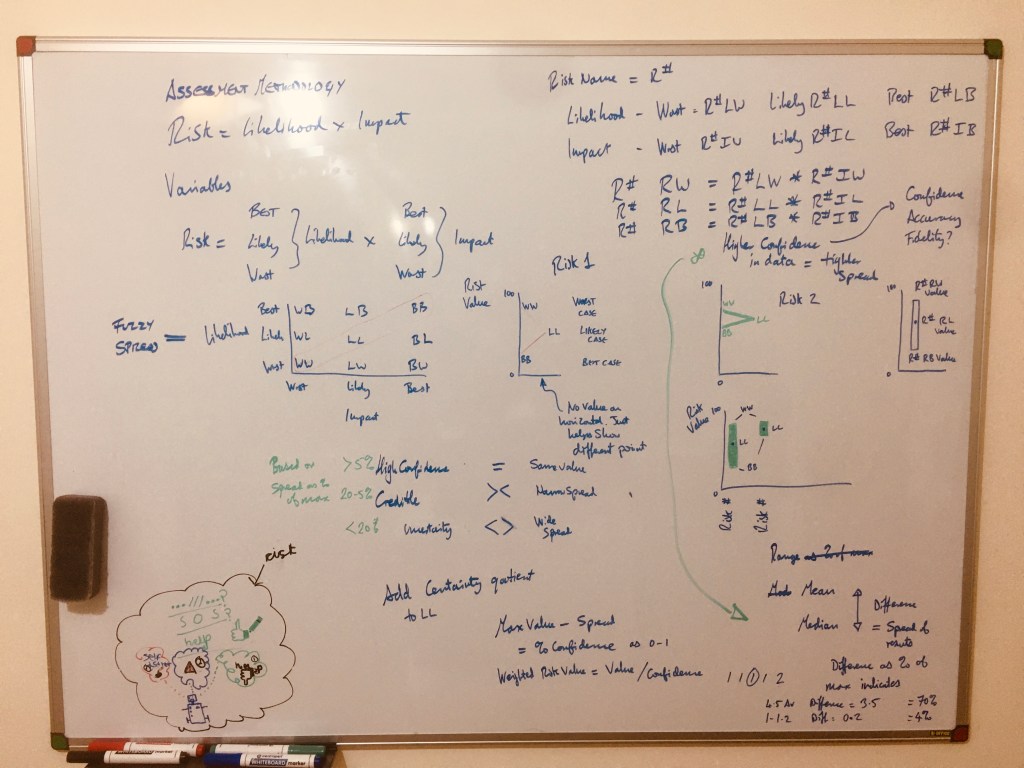 ASSESSMENT METHODOLOGY
Risk = Likelihood x Impact
Variables
BEST
Likely
Worst
Risk =
Likelihood x
Best
Likely
Worst
Impact
FUZZY
SPREAD =
Likelihood
Best WB LB BB
Likely WL LL BL
Worst WW LW BW
Worst Likely Best
Impact
Risk Name = R#
Likelihood - Worst = R#LW Likely R#LL Best R#LB
Impact - Worst R#IW Likely R#IL Best R#IB
R# RW = R#LW * R#IW
R# RL = R#LL * R#IL
R# RB = R#LB * R#IB
Higher Confidence
in data = Higher
Spread
Confidence
Accuracy
Fidelity?
Risk 1
Risk
Value
100
WW
LL
BB
0
WORST
CASE
LIKELY
CASE
BEST CASE
No value on
horizontal. Just
helps show
different point
Risk 2
100
WW
LL
BB
0
100
0
R# RW
Value
R# RL
Value
R# RB Value
Risk
Value
100
WW
LL
LL
BB
0
Risk #
Risk #
Based on
Spread as %
of max
>5% High Confidence = Same value
20-5% Credible >< Narrow Spread
<20% Uncertainty <> Wide
Spread
Add Certainty quotient
to LL
Max Value - Spread
= % Confidence as 0-1
Weighted Risk Value = Value / Confidence
1 1 1 1 2
Range as % of max
Mean
Median
Difference
= Spread of
results
Difference as % of
max indicates
4.5 Av Difference = 3.5 = 70%
1-1.2 Diff = 0.2 = 4%
risk
...///...?
SOS?
help
WHITEBOARD marker